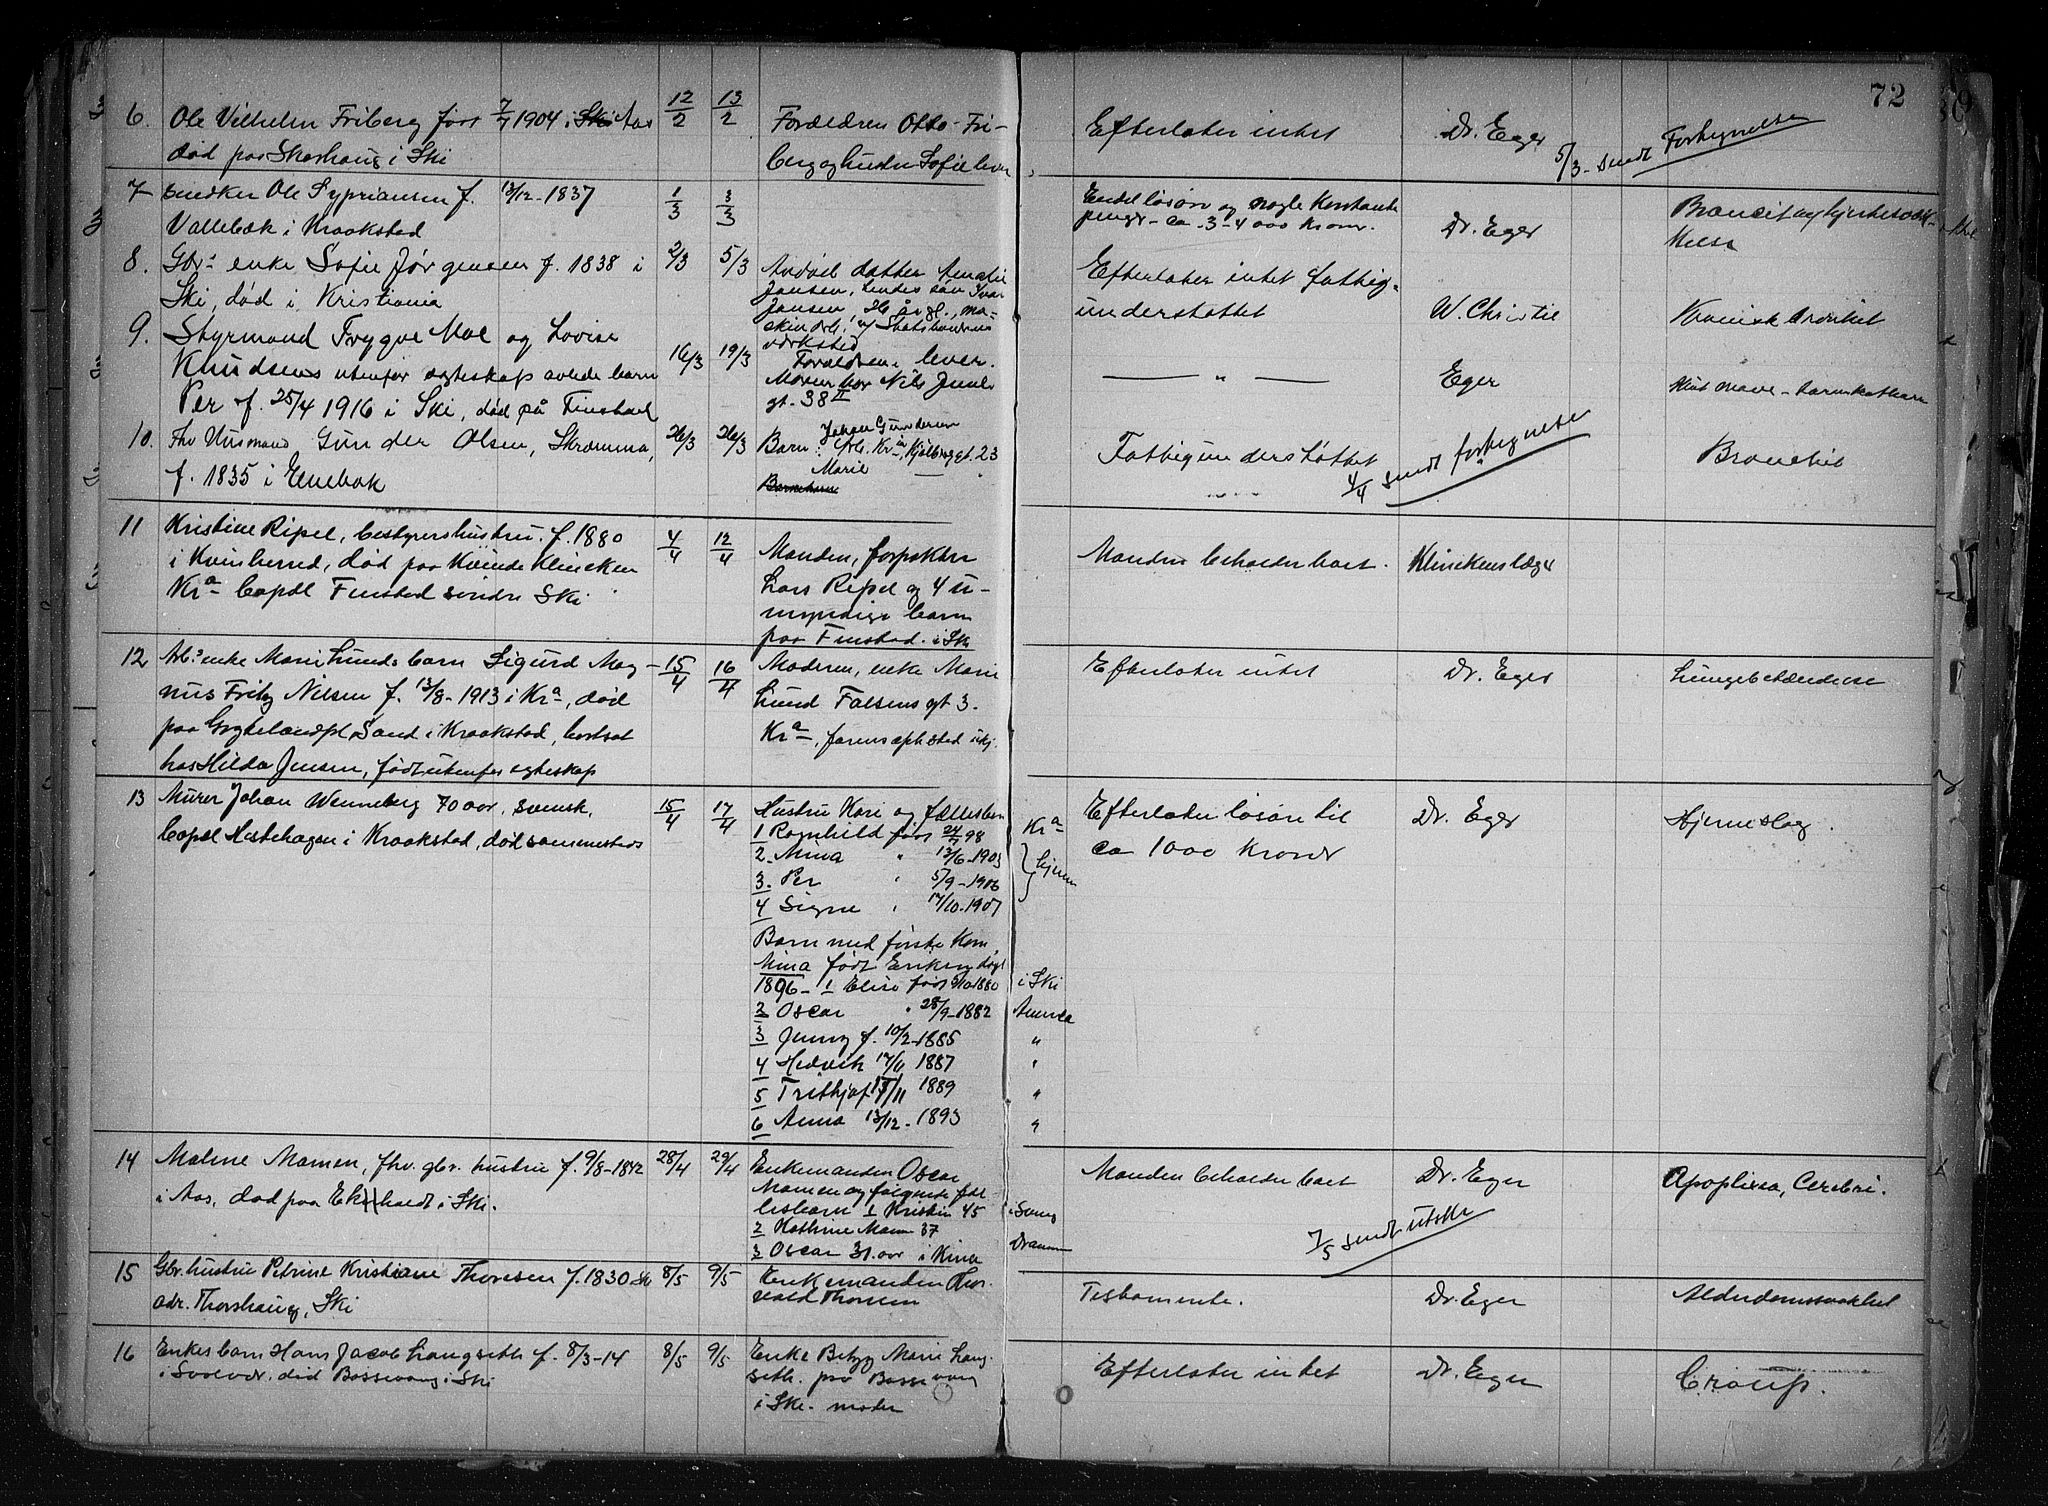 72
6. Ole Vilhelm Friberg født 7/7 1904 i Ski Aas 12/2 13/2 Forældren Otto Fri- Efterlater intet Dr. Eger 5/3 - sendt Fortegnelse
død paa Skorhaug i Ski berg og hustru Sofie lever
7 Snedker Ole Sypriansen f. 13/12-1837 1/3 3/3 Endel løsøre og nogle Kontante Dr. Eger
Vallebæk i Kraakstad penger - ca. 3-4000 Kroner.
8. Gbr. enke Sofie Jørgensen f. 1838 i 2/3 5/3 Avdød datter Amalie Efterlater intet fattig-
Ski, død i Kristiania Jansen, hendes søn Ivar understøttet W. Christie Kronisk
Jansen, 26 år gl., ma-
skinarb. v/ Statsbanernes
verksted
9. Styrmand Trygve Moe og Lovise 16/3 19/3 Forældrene lever.
Knudsens utenfor ægteskap avlede barn Moren bor Nils Juels — " — Eger Akut Mave-tarmkatharr
Per f. 25/4 1916 i Ski, død på Finstad gt. 38 II
10. Fhv Husmand Gunder Olsen, Skromma, 26/3 26/3 Barn: Johan Gundersen Fattigunderstøttet 4/4 sendt fortegnelse Bronchit
f. 1835 i Enebak Arb. Kr.ia Kjølberggt. 23
Marie — "
11 Kristine Ripel, bestyrershustru f. 1880 4/4 12/4 Manden, forpakter Manden beholder boet. Klinikens læge
i Kvinherred, død paa Kvinde Kliniken Lars Ripel og 4 u-
Kr.a bopdl Finstad søndre Ski myndige barn
paa Finstad i Ski
12 Arb. enke Marie Lunds barn Sigurd Mag- 15/4 16/4 Moderen, enke Marie Efterlater intet Dr. Eger Lungebetændelse
nus Fritz Nilsen f. 13/8-1913 i Kr.a, død Lund Falsens gt 3.
paa Grytelandpl. Sand i Kraakstad, bortsat Kr.a, farens opholdsted ukj.
hos Hilda Jensen, født utenfor egteskap
13 Murer Johan Wenneberg 70 aar, svensk, 15/4 17/4 Hustru Kari og fællesbarn Efterlater løsøre til Dr. Eger Hjerneslag.
bopdl Hestehagen i Kraakstad, død sammesteds 1 Ragnhild født 24/7 98 Kr.a ca 1000 Kroner
2. Mina " 13/6-1903 } hjemme
3. Per " 5/9-1906
4 Signe " 17/10-1907
Barn med første Kone
Mina født Eriksen død
1896 - 1 Elise født 1880 i Ski
2 Oscar " 28/9-1882 America
3 Jenny f. 10/2-1885 "
4 Hedvik 1887 "
5 Frithjof 11 1889 "
6 Anna 13/12-1893 "
14 Maline Mamen, fhv. gbr. hustru f. 9/8-1842 28/4 29/4 Enkemanden Oscar Manden beholder boet Dr. Eger Apoplexia, Cerebri.
i Aas, død paa Ekholdt i Ski. Mamen og følgende fæl-
lesbarn 1 Kristin 45
2 Kathrine Mamen 37 7/5 sendt utskr.
3 Oscar 31 aar i Kina Drammen
15 Gbr. hustru Petrine Kristiane Thoresen f. 1830 Ski 8/5 9/5 Enkemanden Thor- Testamente. Dr. Eger Alderdomssvakhet
adr. Thorshaug, Ski vald Thoresen
16 Enkes barn Hans Jacob Langseth f. 8/3-14 8/5 9/5 Enke Betzy Marie Lang- Efterlater intet Dr. Eger Croup.
i Svolvær. død Bassevang i Ski seth. paa Bassevang
i Ski - moder